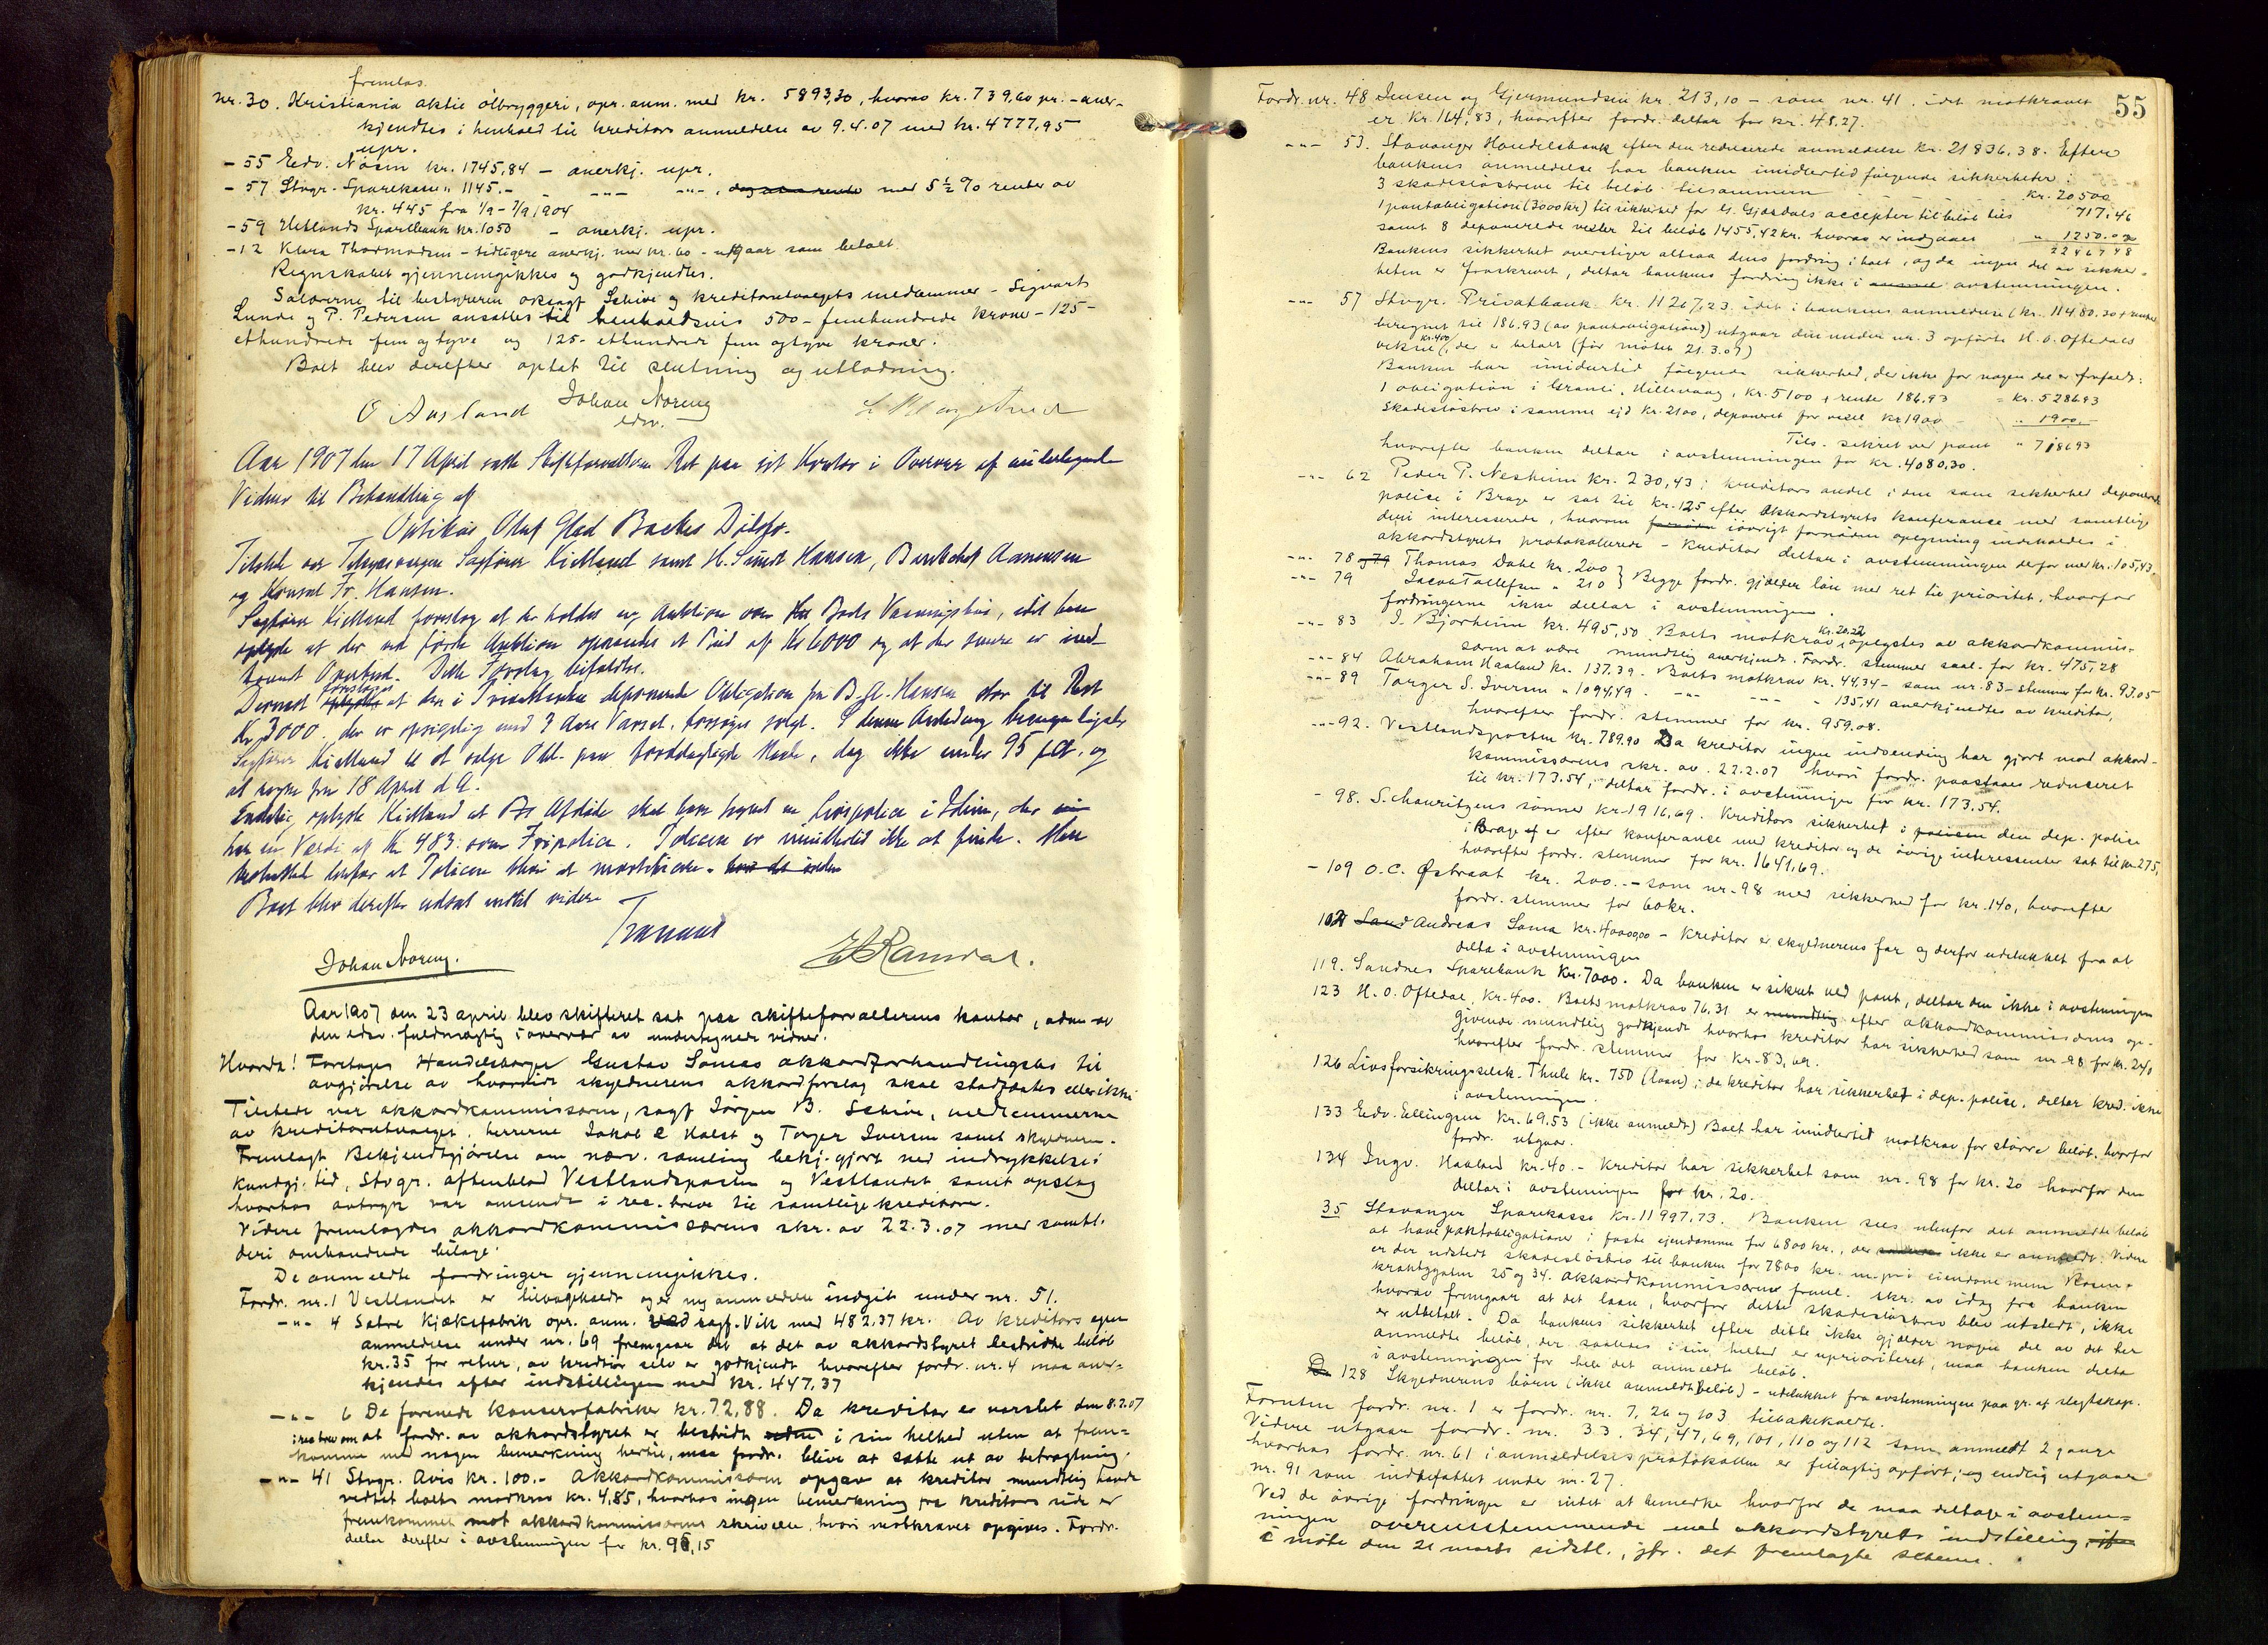 fremlas
nr. 30. Kristiania aktie ölbryggeri, opr. anm. med kr. 5893,30, hvorav kr. 739,60 pr. - aner-
kjendtes i henhold til kreditors anmeldelse av 9.4.07 med kr. 4777,95
upr.
- 55 Edv. Nösen kr. 1745,84 - anerkj. upr.
- 57 Stvgr. Sparekasse " 1145.- - -"- -"-, med 5½ % renter av
kr. 445 fra 1/9 - 7/9 1904
- 59 Hetlands Sparebank kr. 1050 - anerkj. upr.
- 12 Klara Thormodsen - tidligere anerkj. med kr. 60 - utgaar som betalt.
Regnskabet gjennemgikkes og godkjendtes.
Salærerne til bestyreren orsagf Schive og kreditorutvalgets medlemmer - Sigvart
Lunde og P. Pedersen ansattes til henholdsvis 500 - femhundrede kroner - 125 -
ethundrede fem og tyve og 125 - ethundrede fem og tyve kroner.
Boet blev derefter optat til slutning og utlodning.
O Ausland Johan Noreng
edsv.
Aar 1907 den 17 April satte Skifteforvalteren Ret paa sit Kontor i Overvær af undertegnede
Vidner til Behandling af
Optikus Oluf Glad Backes Dödsbo.
Tilstede var Sagförer Kielland samt H. Sundt Hansen, Aanensen
og Konsul Fr. Hansen.
Sagförer Kielland foreslog at der holdes ny Auktion over Boets Vaaningshus, idet han
oplyste at der ved förste Auktion opnaaedes et Bud af Kr 6000 og at der senere er ind-
kommet Overbud. Dette Forslag bifaldtes.
Dernæst foresloges at den i Privatbanken deponerede Obligation fra B. A. Hansen stor til Rest
Kr. 3000. der er opsigelig med 3 Aars Varsel, forsöges solgt. I denne Anledning bemyndigedes
Sagförer Kielland til at sælge Obl. paa fordelagtigste Maade, dog ikke under 95 pct. og
at regne fra 18 April d. A.
Endelig oplyste Kielland at Afdöde skal have tegnet en Livspolice i Idun, der
har en Værdi af Kr 483. som Fripolice. Policen er imidlertid ikke at finde. Man
besluttede derfor at Policen bliver at mortificere.
Boet blev derefter udsat indtil videre
Johan Noreng.
Aar 1907 den 23 april blev skifteret sat paa skifteforvalterens kontor, adm. av
den edsv. fuldmægtig i overvær av undertegnede vidner.
Hvorda! Foretoges Handelsborger Gustav Somas akkordforhandlingsbo til
avgjörelse av hvorvidt skyldnerens akkordforslag skal stadfæstes eller ikke.
Tilstede var akkordkommissæren, sagf Jörgen B. Schive, medlemmerne
av kreditorutvalget, herrerne Jakob E Holst og Torger Iversen samt skyldneren.
Fremlagt Bekjendtgjörelse om nærv. samling bekj. gjort ved indrykkelse i
Kundgj. tid, Stvgr. aftenblad Vestlandsposten og Vestlandet samt opslag
hvorhos avtryk var anvendt i rec. breve til samtlige kreditorer.
Videre fremlagdes akkordkommissærens skr. av 22.3.07 med samtl.
deri omhandlede bilage.
De anmeldte fordringer gjennemgikkes.
Fordr. nr. 1 Vestlandet er tilbakekaldt og er ny anmeldelse indgit under nr. 51.
-"- 4 Sætre Kjæksfabrik opr. anm. ved sagf. Vik med 482,37 kr. Av kreditors egen
anmeldelse under nr. 69 fremgaar det at det av akkordstyret bestridte belöb
kr. 35 for retur, av kreditor selv er godkjendt hvorefter fordr. nr. 4 maa aner-
kjendes efter indstillingen med kr. 447,37
-"- 6 De forenede konservefabriker kr. 72,88. Da kreditor er varslet den 8.2.07
i rec brev om at fordr. av akkordstyret er bestridt i sin helhed uten at frem-
komme med nogen bemerkning hertil, maa fordr. blive at sætte ut av betragtning.
-"- 41 Stvgr. Avis kr. 100.- Akkordkommissæren opgav at kreditor mundtlig havde
vedtat boets motkrav kr. 4,85, hvorhos ingen bemerkning fra kreditors side er
fremkommet mot akkordkommissærens skrivelse, hvori motkravet opgives. Fordr.
deltar derefter i avstemningen for kr. 95,15
55
Fordr. nr. 48 Jensen og Gjermundsen kr. 213,10 - som nr. 41. idet motkravet
er kr. 164,83, hvorefter fordr. deltar for kr. 48,27.
-"- 53. Stavanger Handelsbank efter den reducerede anmeldelse kr. 21836,38. Efter
bankens anmeldelse har banken imidlertid fölgende sikkerheter:
3 skadeslösbreve til belöb tilsammen kr. 20500
1 pantobligation (3000 kr) til sikkerhed for G. Gjesdals accepter til belöb tils 717,46
samt 8 deponerede veksler til belöb 1455,42 kr. hvorav er indgaaet " 1250.02
22467,48
Bankens sikkerhet overstiger altsaa dens fordring i boet, og da ingen del av sikker-
heten er fraskrevet, deltar bankens fordring ikke i avstemningen.
-"- 57 Stvgr. Privatbank kr. 11267,23. idet i bankens anmeldelse (kr. 11480.30 + renter
beregnet til 186.93 (av pantobligation) utgaar den under nr. 3 opförte H. O. Oftedals
veksel kr. 400, der er betalt (för mötet 21.3.07)
Banken har imidlertid fölgende sikkerhed, der ikke for nogen del er frafaldt:
1 obligation i Granli, Hillevaag, kr. 5100 + rente 186.93 = kr. 5286.93
Skadeslösbrev i samme ejd kr. 2100, deponeret for veksl kr 1900 - " 1900.-
Tils. sikret ved pant " 7186,93
hvorefter banken deltar i avstemningen for kr. 4080,30.
-"- 62 Peder P. Nesheim kr. 230,43; kreditors andel i den som sikkerhed deponerede
police i Brage er sat til kr. 125 efter akkordstyrets konferance med samtlige
deri interesserede, hvorom iövrigt fornöden oplysning indeholdes i
akkordstyrets protokollerede - Kreditor deltar i avstemningen derfor med kr. 105,43.
-"- 78 Thomas Dahl kr. 200 } Begge fordr. gjælder lön med ret til prioritet, hvorfor
-"- 79 Jacob Tollefsen " 210
fordringerne ikke deltar i avstemningen.
-"- 83 I. Bjorheim kr. 495,50. Boets motkrav kr. 20,22 oplystes av akkordkommis-
særen at være mundtlig anerkjendt. Fordr. stemmer saal. for kr. 475,28
-"- 84 Abraham Haaland kr. 137.39. Boets motkrav kr. 44,34 - som nr. 83 - stemmer for kr. 93.05
-"- 89 Torger S. Iversen " 1094,49. -"- -"- - 135,41 anerkjendtes av kreditor,
hvorefter fordr. stemmer for kr. 959.08.
-"- 92. Vestlandsposten kr. 789.90 Da kreditor ingen indvending har gjort mod akkord-
kommissærens skr. av 22.2.07 hvori fordr. paastaaes reduceret
til kr. 173.54, deltar fordr. i avstemningen for kr. 173.54.
- 98. S. Mauritzens sönner kr. 1916,69. Kreditors sikkerhet i den dep. police
i Brage er efter konferance med kreditor og de övrige interessenter sat til kr. 275,
hvorefter fordr. stemmer for kr. 1641,69.
- 109 O. C. Östraat kr. 200.- - som nr. 98 med sikkerhed for kr. 140, hvorefter
fordr. stemmer for 60 kr.
Andreas Soma kr. 40000,00 - Kreditor er skyldnerens far og derfor udelukket fra at
delta i avstemningen
119. Sandnes Sparebank kr. 7000. Da banken er sikret ved pant, deltar den ikke i avstemningen
123 H. O. Oftedal, kr. 400. Boets motkrav 76,31 er efter akkordkommissærens op-
givende mundtlig godkjendt hvorhos kreditor har sikkerhed som nr. 98 for kr. 240
hvorefter fordr. stemmer for kr. 83,69.
126 Livsforsikringsselsk. Thule kr. 750 (laan); da kreditor har sikkerhet i dep. police, deltar kred. ikke
i avstemningen.
133 Edv. Ellingsen kr. 69.53 (ikke anmeldt) Boet har imidlertid motkrav for större belöb, hvorfor
fordr. utgaar.
134 Ingv. Haaland kr. 40.- Kreditor har sikkerhet som nr. 98 for kr. 20 hvorfor den
deltar i avstemningen for kr. 20.
35 Stavanger Sparekasse kr. 11997,73. Banken sees utenfor det anmeldte belöb
at have pantobligationer i faste ejendomme for 6800 kr., der ikke er anmeldt. Videre
er der udstedt skadeslösbrev til banken for 7800 kr. m. pr. i eiendommene Rosen-
krantzgaten 25 og 34. Akkordkommissæren freml. skr. av idag fra banken
hvorav fremgaar at det laan, hvorfor dette skadeslösbrev blev utstedt, ikke
er utbetalt. Da bankens sikkerhet efter dette ikke gjælder nogen del av det her
anmeldte belöb, der saaledes i sin helhed er uprioriteret, maa banken delta
i avstemningen for hele det anmeldte belöb.
128 Skyldnerens börn (ikke anmeldt belöb) - udelukket fra avstemningen paa gr. af slegtskap.
Foruten fordr. nr. 1 er fordr. nr. 7, 26 og 103 tilbakekaldte.
Videre utgaar fordr. nr. 33, 34, 47, 69, 101, 110 og 112 som anmeldt 2 gange
hvorhos fordr. nr. 61 i anmeldelsesprotokollen er feilagtig opfört; og endlig utgaar
nr. 91 som indbefattet under nr. 27.
Ved de övrige fordringer er intet at bemerke hvorfor de maa deltage i avstem-
ningen overensstemmende med akkordstyrets indstilling
i möte den 21 marts sidstl., jfr. det fremlagte schema.